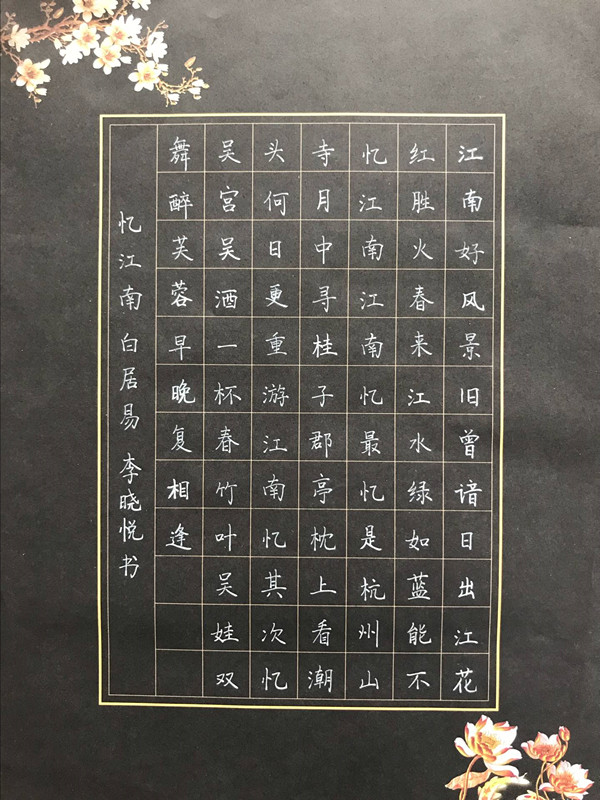 江南好风景旧曾谙日出江花
红胜火春来江水绿如蓝能不
忆江南江南忆最忆是杭州山
寺月中寻桂子郡亭枕上看潮
头何日更重游江南忆其次忆
吴宫吴酒一杯春竹叶吴娃双
舞醉芙蓉早晚复相逢
忆江南 白居易 李晓悦书